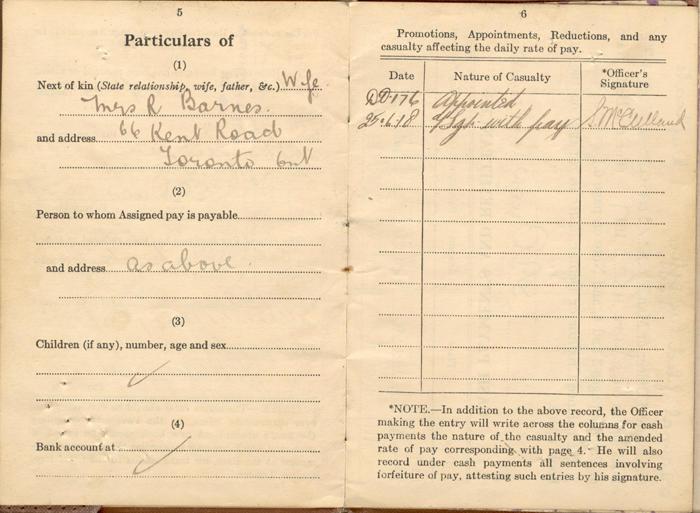 5
Particulars of
(1)
Next of kin (State relationship, wife, father, &c.) Wife
Mrs R Barnes.
and address 66 Kent Road
Toronto Ont
(2)
Person to whom Assigned pay is payable
and address as above.
(3)
Children (if any), number, age and sex
(4)
Bank account at
6
Promotions, Appointments, Reductions, and any
casualty affecting the daily rate of pay.
Date Nature of Casualty *Officer's
Signature
DD-176 Appointed
25-6-18 a/Sgt with pay
*NOTE.—In addition to the above record, the Officer
making the entry will write across the columns for cash
payments the nature of the casualty and the amended
rate of pay corresponding with page 4. He will also
record under cash payments all sentences involving
forfeiture of pay, attesting such entries by his signature.